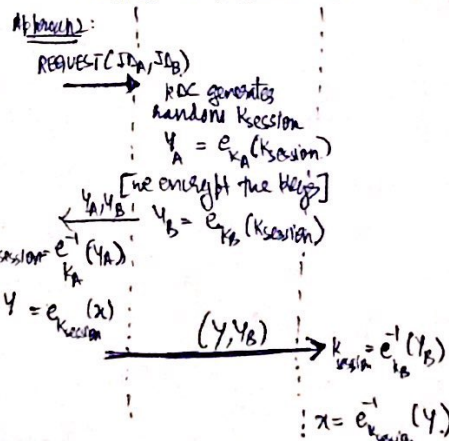 Approach 2:
REQUEST(ID_A, ID_B)
KDC generates
random K_session
y_A = e_{K_A}(K_session)
[we encrypt the keys]
y_A, y_B
y_B = e_{K_B}(K_session)
session = e^{-1}_{K_A}(y_A)
y = e_{K_session}(x)
(y, y_B)
K_session = e^{-1}_{K_B}(y_B)
x = e^{-1}_{K_session}(y)